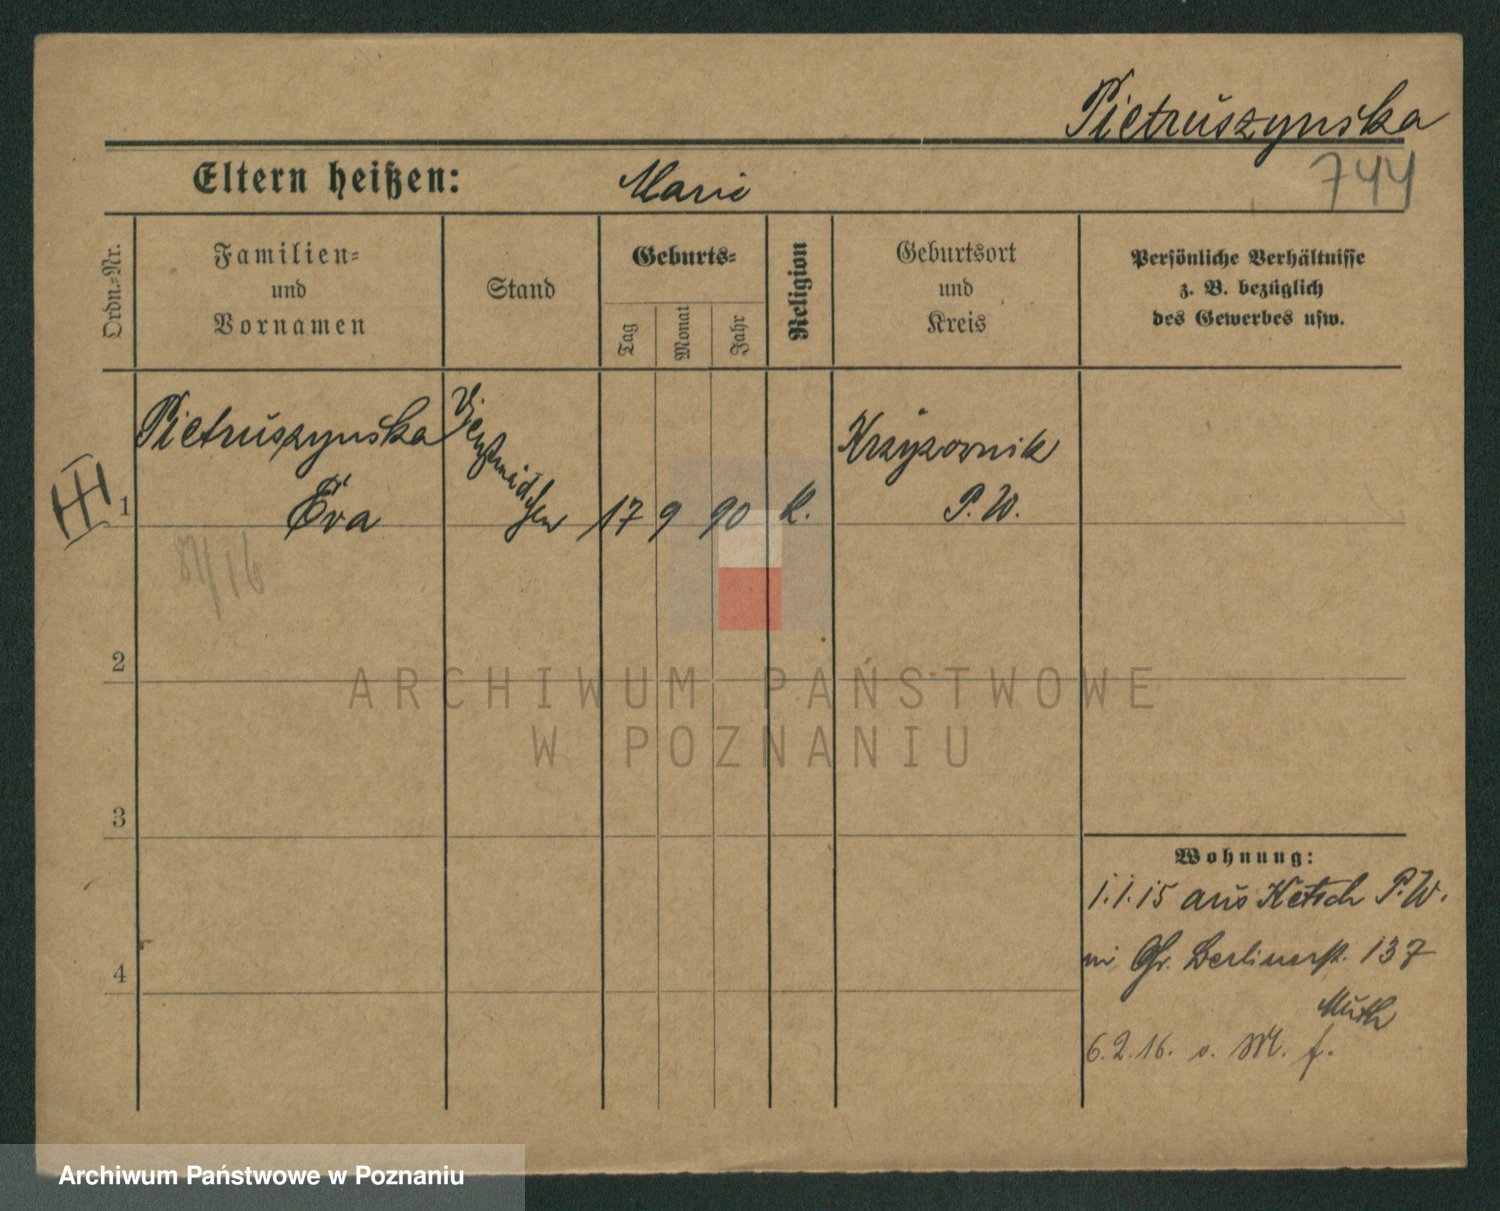 Pietruszynska
744
Eltern heißen:
Marie
Ordn.=Nr.
Familien=
und
Vornamen
Stand
Geburts=
Tag
Monat
Jahr
Religion
Geburtsort
und
Kreis
Persönliche Verhältnisse
z. B. bezüglich
des Gewerbes usw.
1
Pietruszynska
Eva
Dienstmädchen
17 9 90 k.
Krzyzownik
P. W.
2
3
4
Wohnung:
1.1.15 aus Ketsch P. W.
Gr. Berlinerst. 137
Muth
6.2.16. v. M. f.
ARCHIWUM PAŃSTWOWE
W POZNANIU
Archiwum Państwowe w Poznaniu